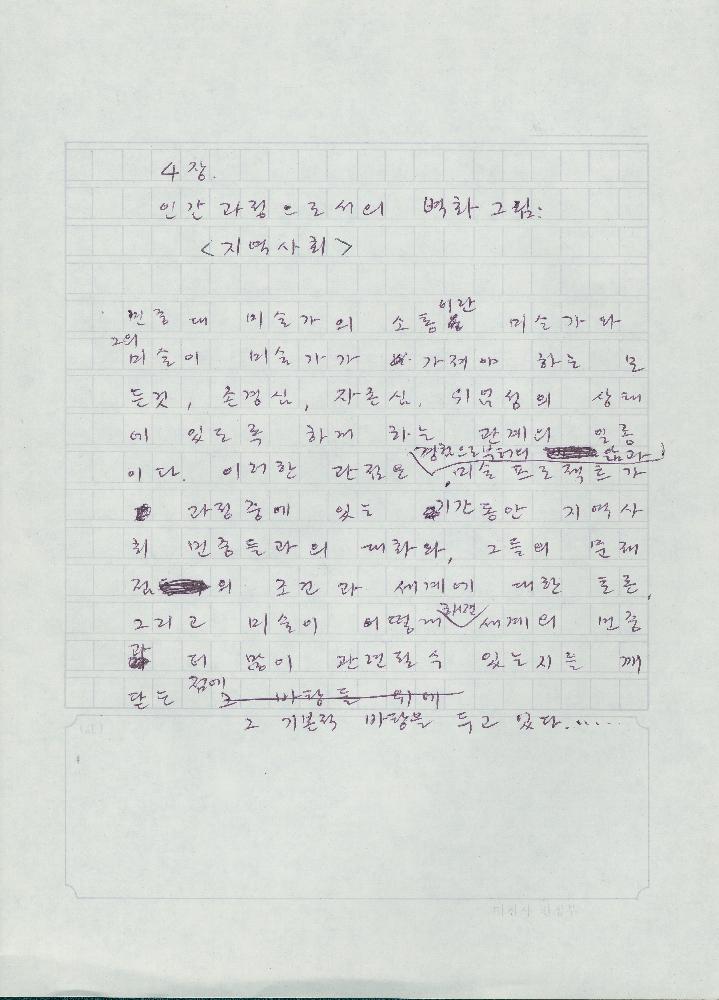 4장.
인간과정으로서의 벽화그림:
<지역사회>
이란
민중 대 미술가의 소통 미술가와
그의
미술이 미술가가 가져야 하는 모
든것, 존경심, 자존심, 위엄성의 상태
에 있도록 하게 하는 관계의 일종
경험으로부터의 앎과
이다. 이러한 관점은, 미술프로젝트가
과정중에 있는 기간동안 지역사
회 민중들과의 대화와, 그들의 문제
점의 조건과 세계에 대한 토론,
그리고 미술이 어떻게 세계의 민중
과 더 많이 관련될 수 있는지를 깨
닫는 점에 그 바탕들 위에
그 기본적 바탕을 두고 있다......